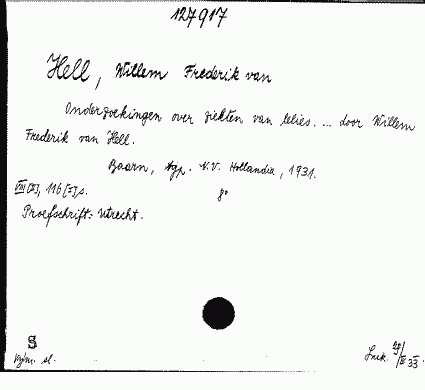 127917
Hell, Willem Frederik van
Onderzoekingen over ziekten van lelies. ... door Willem
Frederik van Hell.
Baarn, typ. N.V. Hollandia, 1931.
VIII [II], 116 [I] s. 8°
Proefschrift: Utrecht.
S